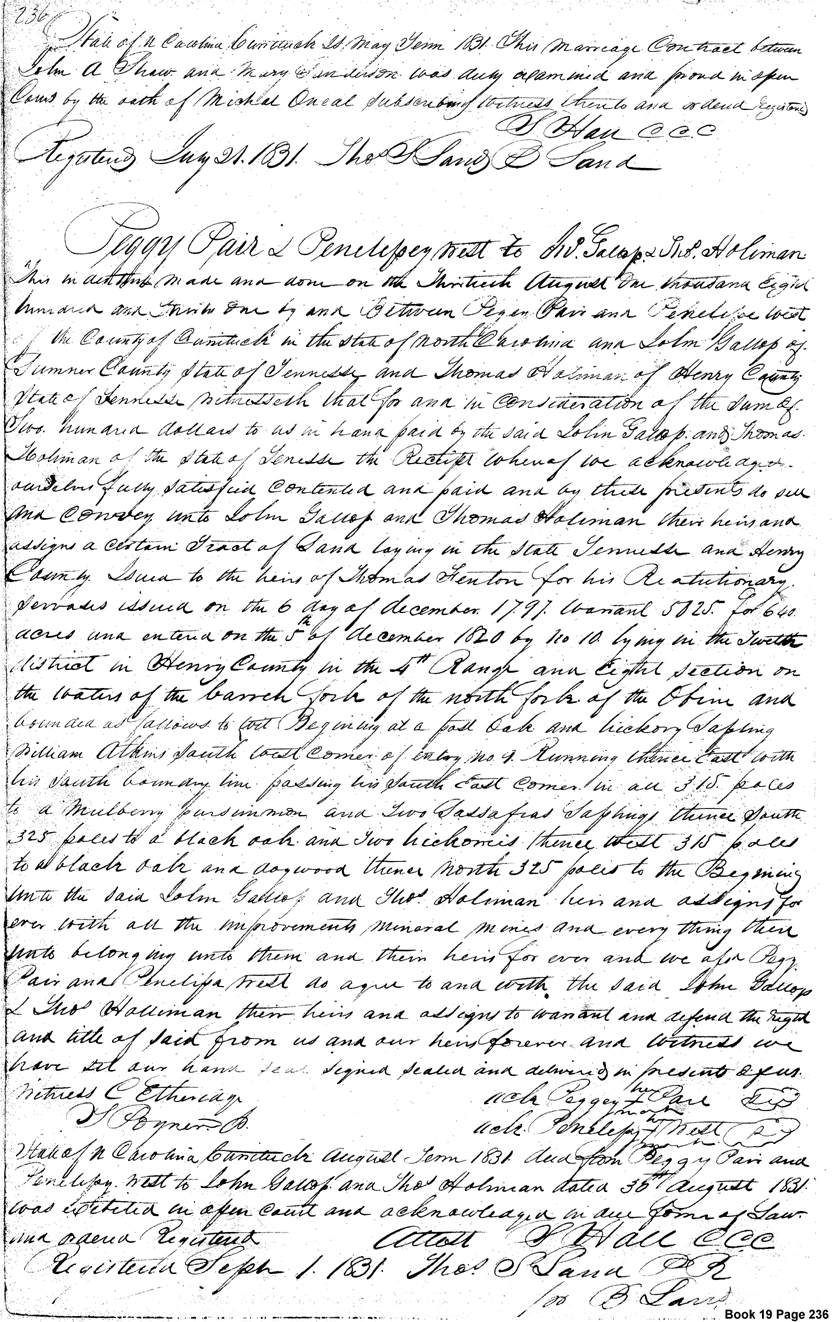 236
State of N Carolina Currituck Ss May Term 1831. This Marriage Contract between
John A Shaw and Mary Sanderson was duly examined and proud in open
Court by the oath of Michal Oneal Subscribing Witness thereto and ordered Registered
S Hall C C C
Registered July 21. 1831. Thos S Land B Land
Peggy Pair & Penelipey West to Jno. Gallop & Thos. Holiman
This indenture made and done on the Thirtieth August One thousand Eight
hundred and Thirty One by and Between Pegey Pair and Penelipe West
of the County of Currituck in the state of North Carolina and John Gallop of
Sumner County State of Tennesse and Thomas Holiman of Henry County
State of Tennesse Witnesseth that for and in Consideration of the Sum of
Two hundred dollars to us in hand paid by the said John Gallop and Thomas
Holiman of the state of Tenesse the Reciept Whereof we acknowledged
ourselves fully satisfied Contented and paid and by these presents do sell
and Convey unto John Gallop and Thomas Holiman their heirs and
assigns a certain Tract of Land laying in the State Tennesse and Henry
County. Issued to the heirs of Thomas Fenton for his Revolutionary
Servases issued on the 6 day of december 1797. Warrant 5025. for 640
acres and entered on the 5th of december 1820 by No 10 lying in the Twelth
district in Henry County in the 4th Range and Eight section on
the waters of the barren fork of the north fork of the Obine and
bounded as fallows to wit Begining at a post Oak and hickory Sapling
William Atkins South West Corner of entry no 9. Running thence East with
his South boundry line passing his South East Corner in all 315 poles
to a Mulberry pursimmon and Two Sassafras Saplings thence South
325 poles to a black oak and Two hickories thence West 315 poles
to a black oak and dogwood thence North 325 poles to the Begining
unto the said John Gallop and Thos Holiman heirs and assigns for
ever with all the improvements mineral mines and every thing there
unto belonging unto them and their heirs for ever and we a Pegy
Pair and Penelipa West do agree to and with the said John Gallop
& Thos Holliman their heirs and assigns to warrant and defend the right
and title of said from us and our heirs forever and Witness we
have set our hand seal signed sealed and delivered in presents of us
Witness C Etheridge ack Peggey her + mark Pair
S Poyner ack Penelipy her + mark West
State of N Carolina Currituck August Term 1831 deed from Peggy Pair and
Penelipy West to John Gallop and Thos Holiman dated 30th August 1831
was exibited in open court and acknowledged in due form of Law
and ordered Registered Attest S Hall CCC
Registered Sepbr 1. 1831. Thos S Land P R
for B Land
Book 19 Page 236